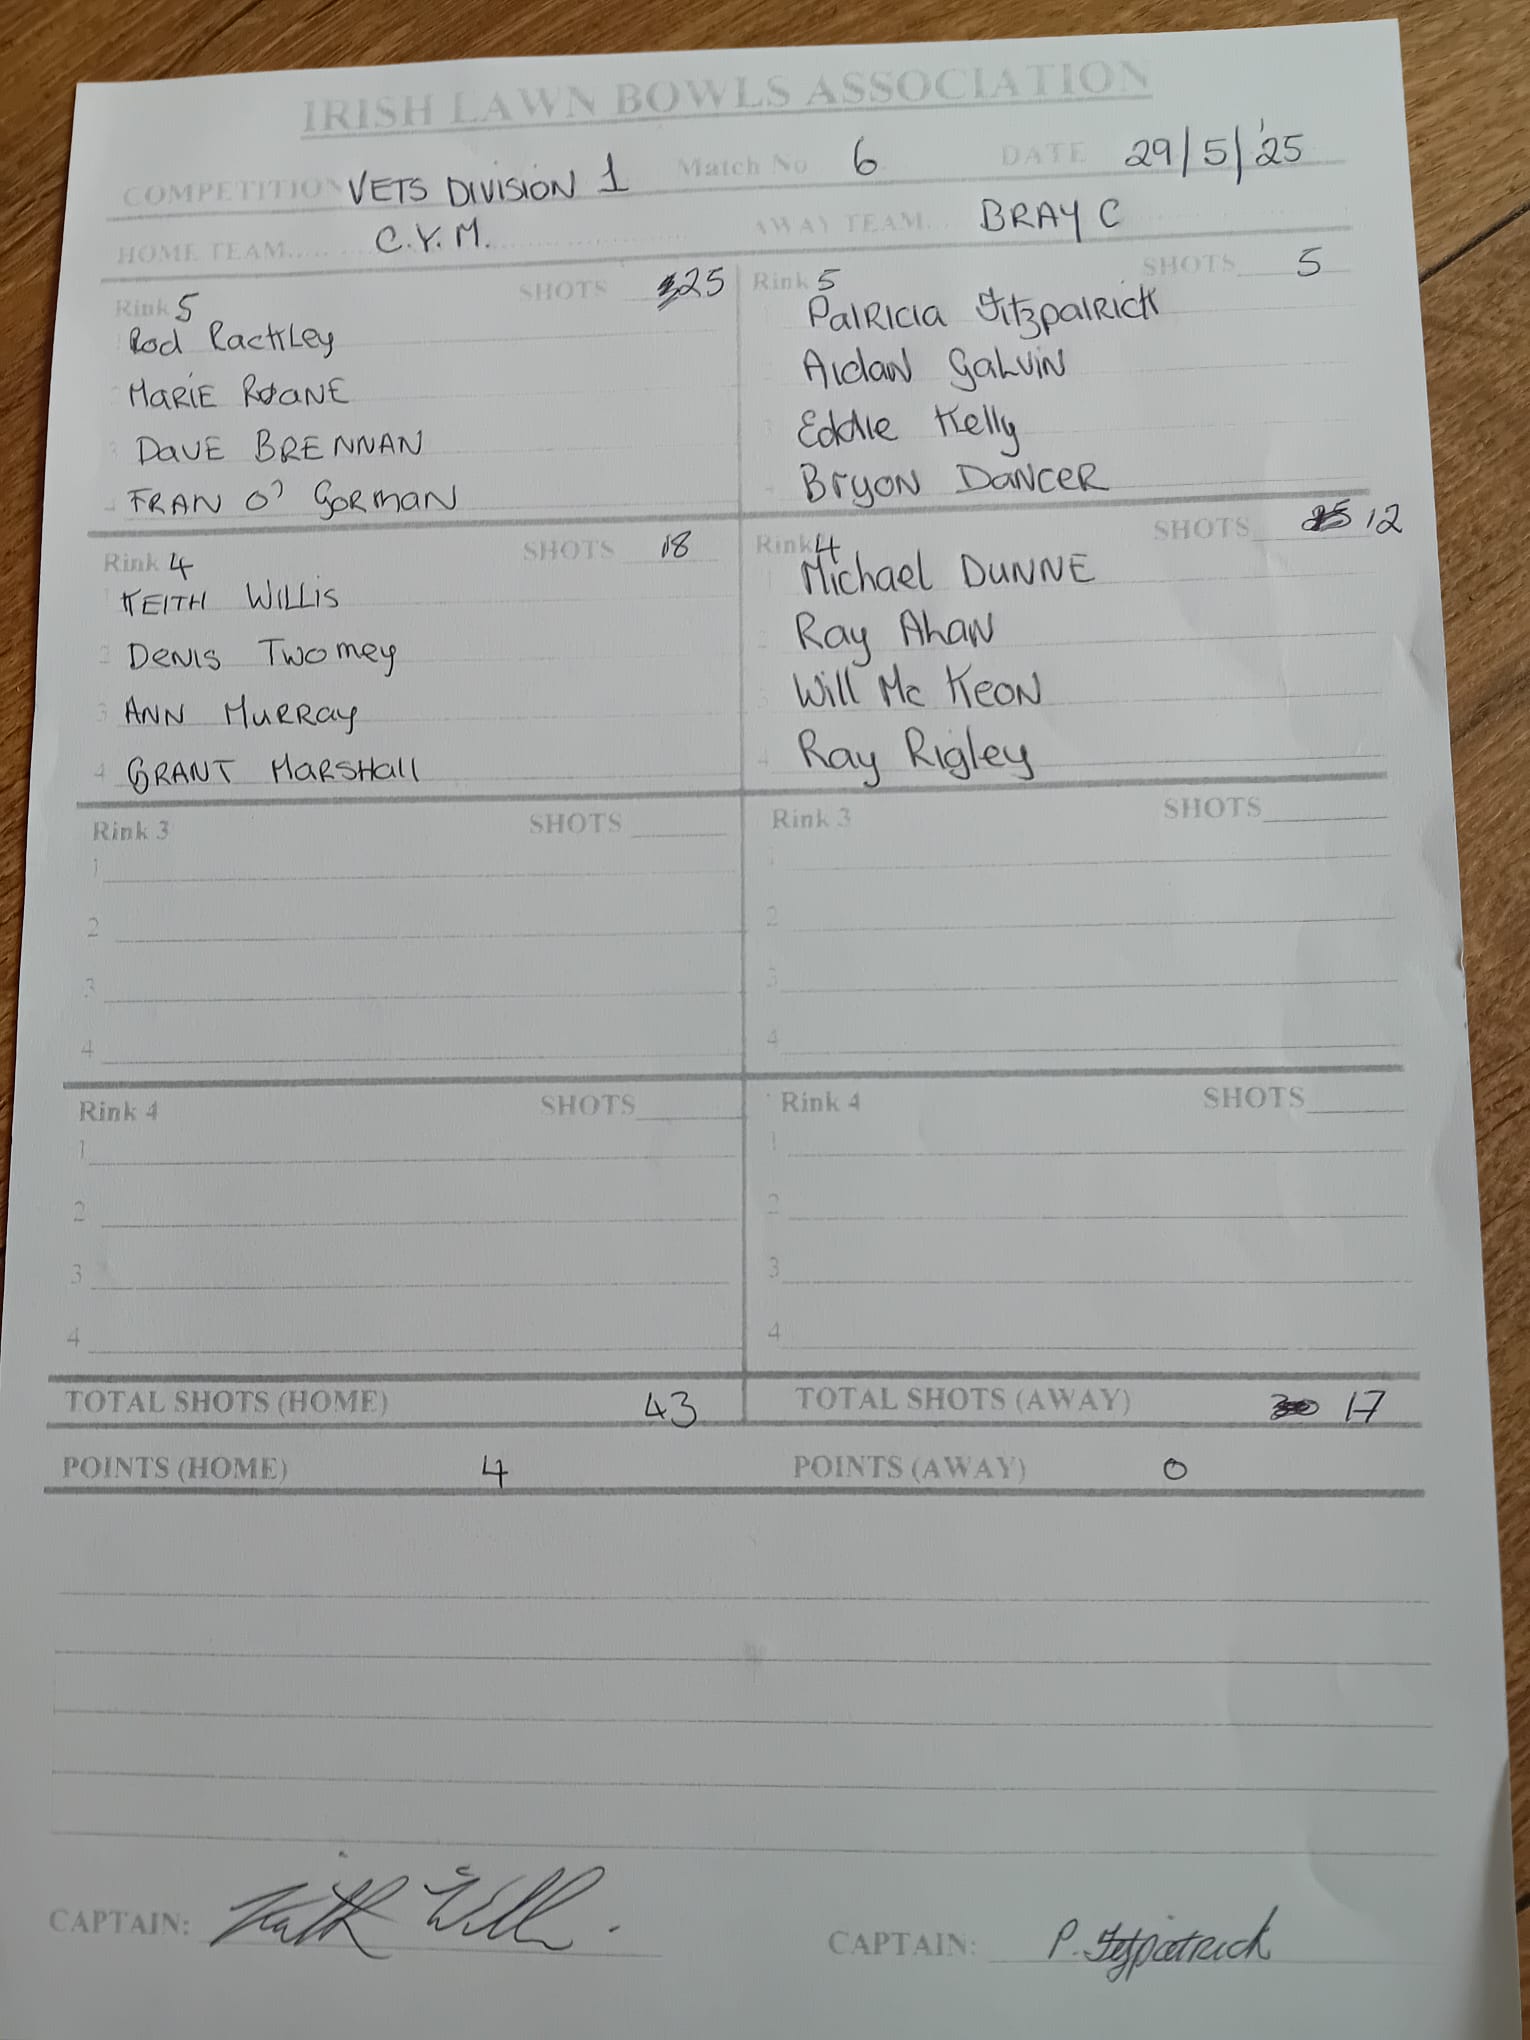 IRISH LAWN BOWLS ASSOCIATION
COMPETITION VETS DIVISION 1 Match No 6 DATE 29/5/'25
HOME TEAM..... C.Y.M. AWAY TEAM... BRAY C
Rink 5 SHOTS 25
Rod Rackley
MARIE ROANE
DAVE BRENNAN
FRAN O' GORMAN
Rink 5 SHOTS 5
PatRicia Fitzpatrick
Aidan Galvin
Eddie Kelly
Bryon DanceR
Rink 4 SHOTS 18
KEITH WILLIS
2 Denis Twomey
3 ANN MURRay
4 GRANT MaRSHall
Rink 4 SHOTS 12
Michael DUNNE
2 Ray Ahan
3 Will Mc Keon
4 Ray Rigley
Rink 3 SHOTS
1
2
3
4
Rink 3 SHOTS
1
2
3
4
Rink 4 SHOTS
1
2
3
4
Rink 4 SHOTS
1
2
3
4
TOTAL SHOTS (HOME) 43 TOTAL SHOTS (AWAY) 17
POINTS (HOME) 4 POINTS (AWAY) 0
CAPTAIN: Keith Willis CAPTAIN: P. Fitzpatrick